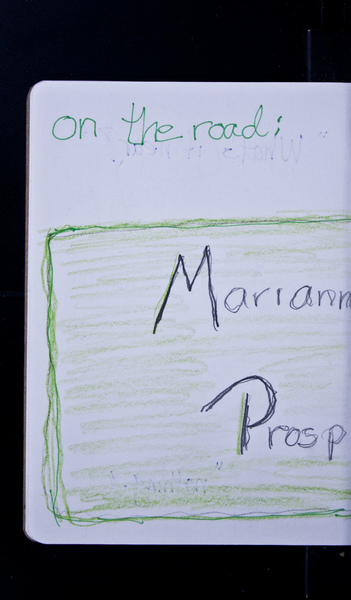 on the road:
Mariann
Prosp